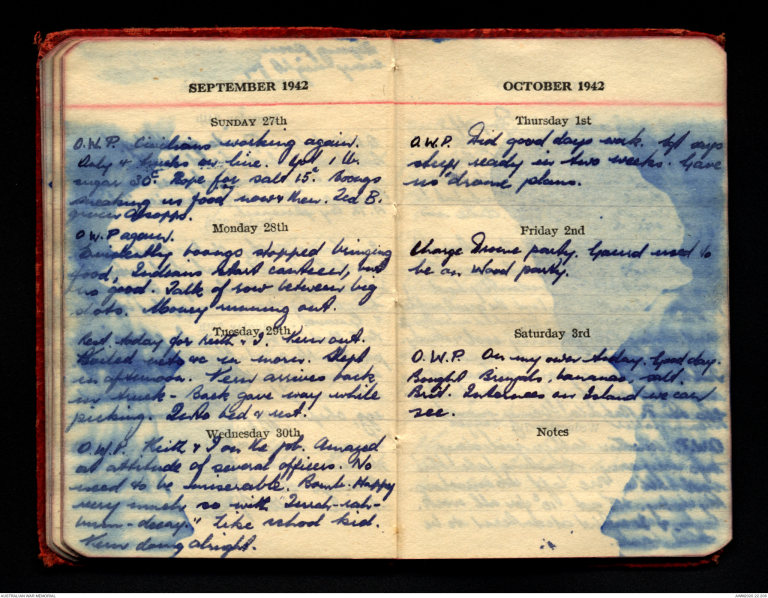 SEPTEMBER 1942
SUNDAY 27th
O.W.P. Civilians working again.
Only 4 trucks on line. Got 1 lb.
sugar 30c Rope for salt 15c. Boongs
sneaking us food now & then. Ted B.
given
Monday 28th
O.W.P again.
Evidently boongs stopped bringing
food, Indians start canteen, but
no good. Talk of row between big
shots. Money running out.
Tuesday 29th
Rest today for Keith & I. Vern out.
Boiled in morn. Slept
in afternoon. Vern arrives back
in truck - Back gave way while
picking. Into bed & rest.
Wednesday 30th
O.W.P. Keith & I on the job. Amazed
at attitude of several officers. No
need to be miserable. Bomb-Happy
very much so with
Like school kid.
Vern doing alright.
OCTOBER 1942
Thursday 1st
O.W.P. Did good days work. says
strip ready in two weeks. Gave
us 'drome plans.
Friday 2nd
Charge Drome party. Guard used to
be on Wood party.
Saturday 3rd
O.W.P. On my own today. Good day.
Bought Brinjals, bananas, salt.
Brit. Internees on Island we can
see.
Notes
AUSTRALIAN WAR MEMORIAL